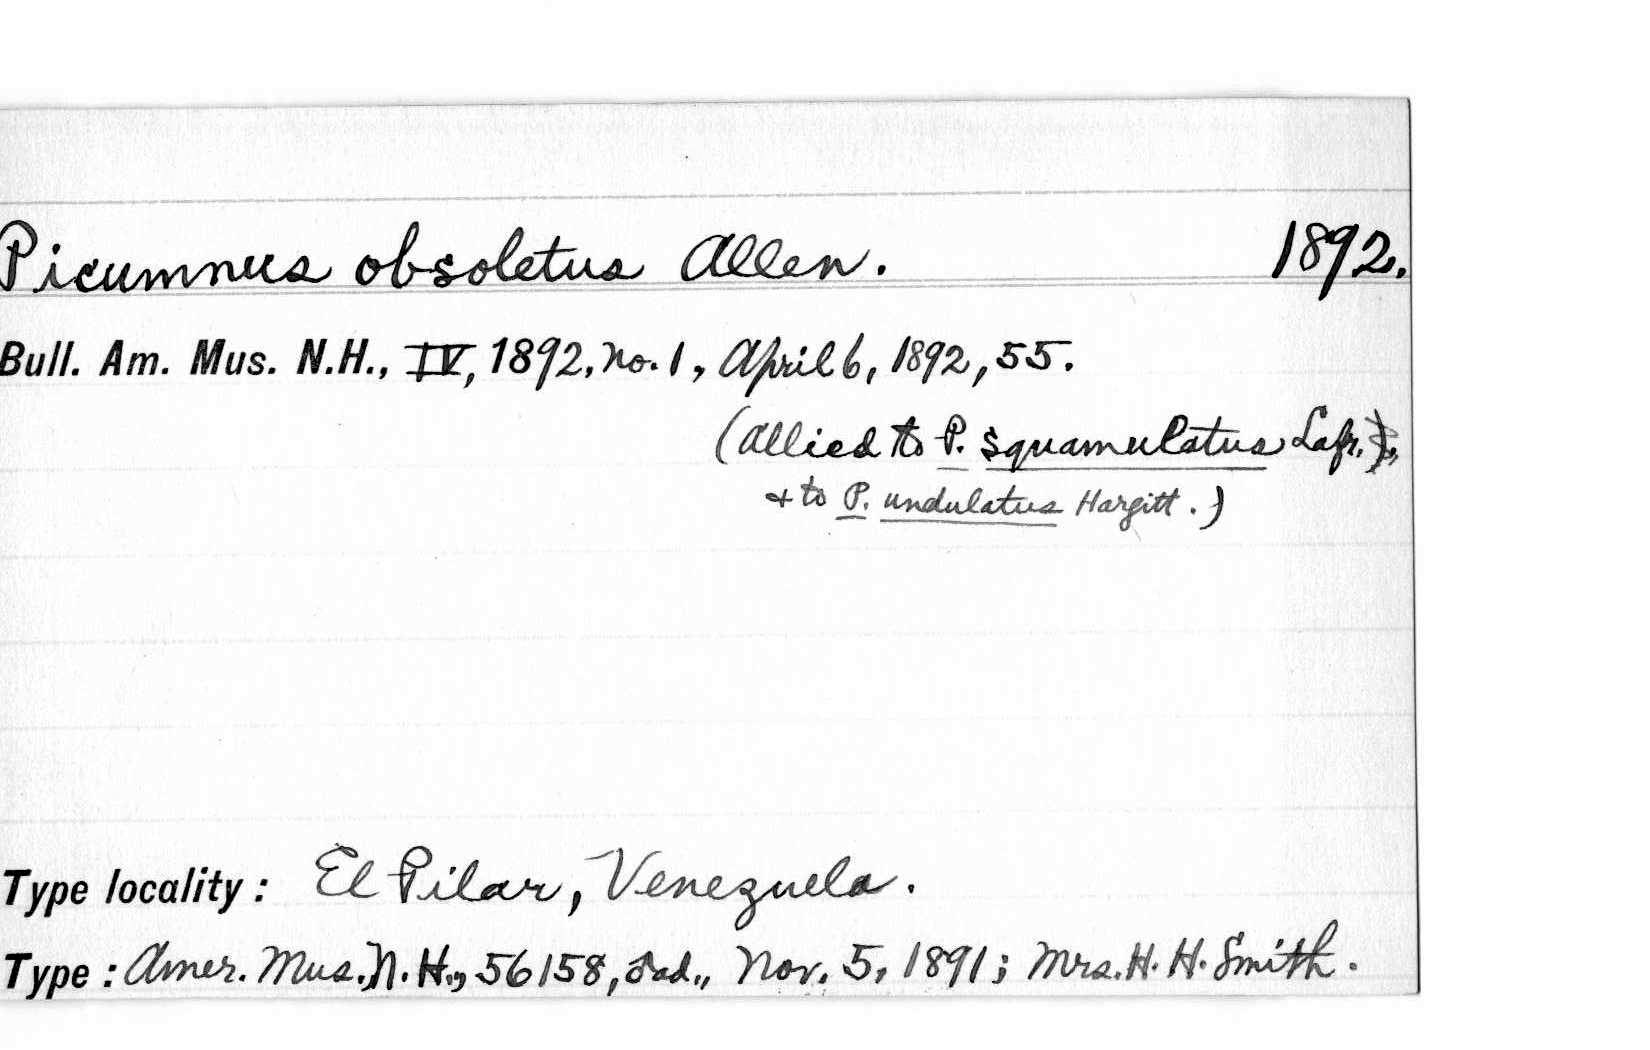 Picumnus obsoletus Allen. 1892.
Bull. Am. Mus. N.H., IV, 1892, no. 1, April 6, 1892, 55.
(Allied to P. squamulatus Lafr.),
+ to P. undulatus Hargitt.)
Type locality: El Pilar, Venezuela.
Type: Amer. Mus. N. H., 56158, ♂ad., Nov. 5, 1891; Mrs. H. H. Smith.